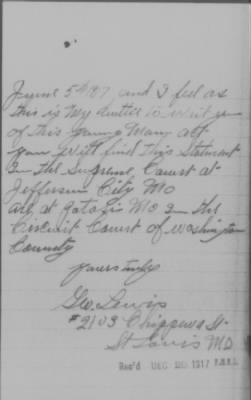 June 5th 87 and I feel as
this is My duttie to writ you
of this young Many act
you Will find this Statment
In the Supreme, Court at
Jefferson City Mo
at Mo In the
Circuit Court of Washington
County
yours truly
Geo. Lewis
#2103 Chippewa St.
St Louis MO
Rec'd DEC 20 1917